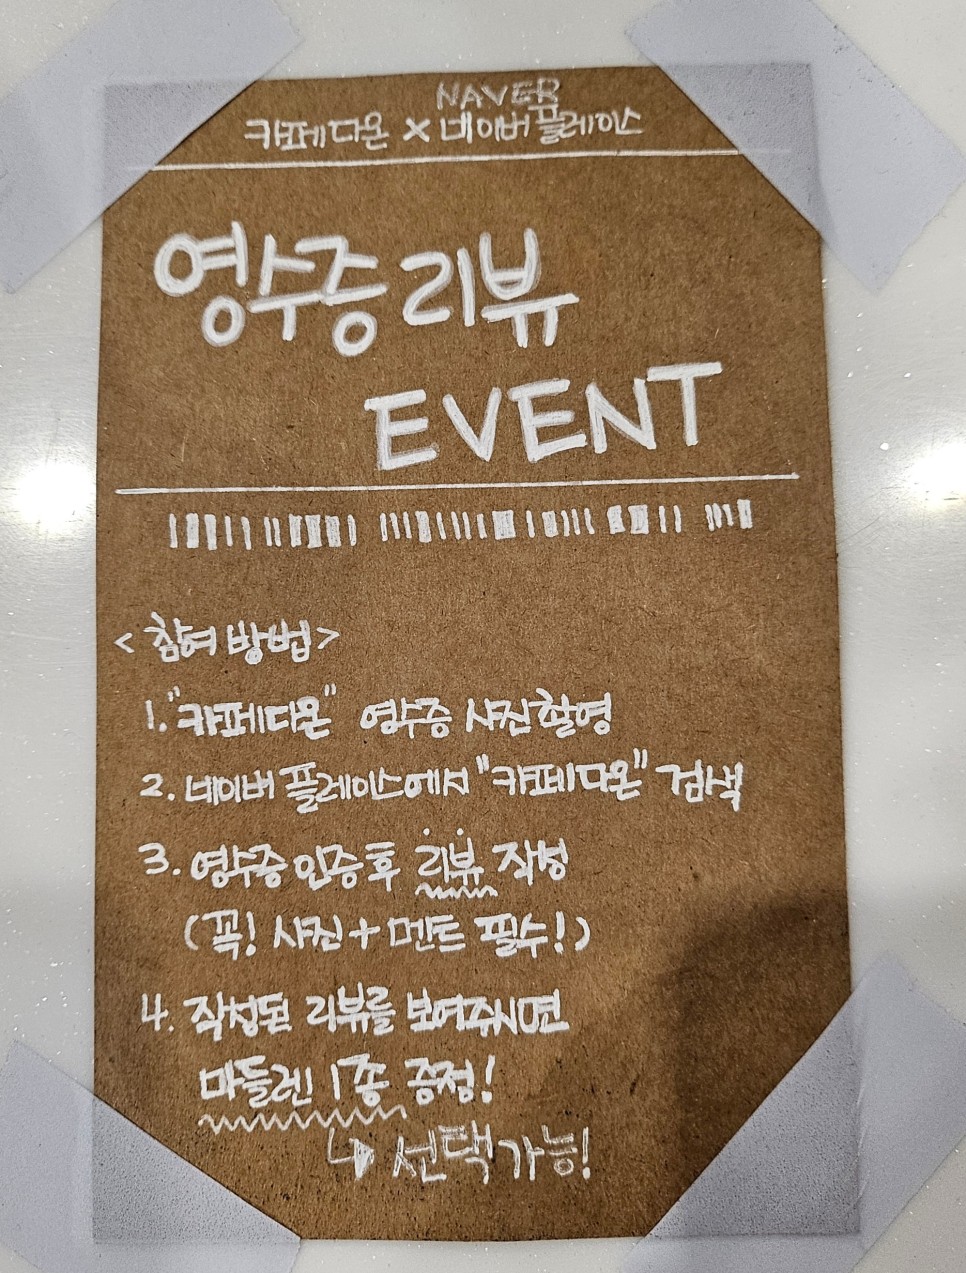 NAVER
카페다온 × 네이버플레이스
영수증 리뷰
EVENT
<참여 방법>
1. "카페다온" 영수증 사진촬영
2. 네이버 플레이스에서 "카페다온" 검색
3. 영수증 인증 후 리뷰 작성
(꼭! 사진 + 멘트 필수!)
4. 작성된 리뷰를 보여주시면
마들렌 1종 증정!
↳ 선택가능!